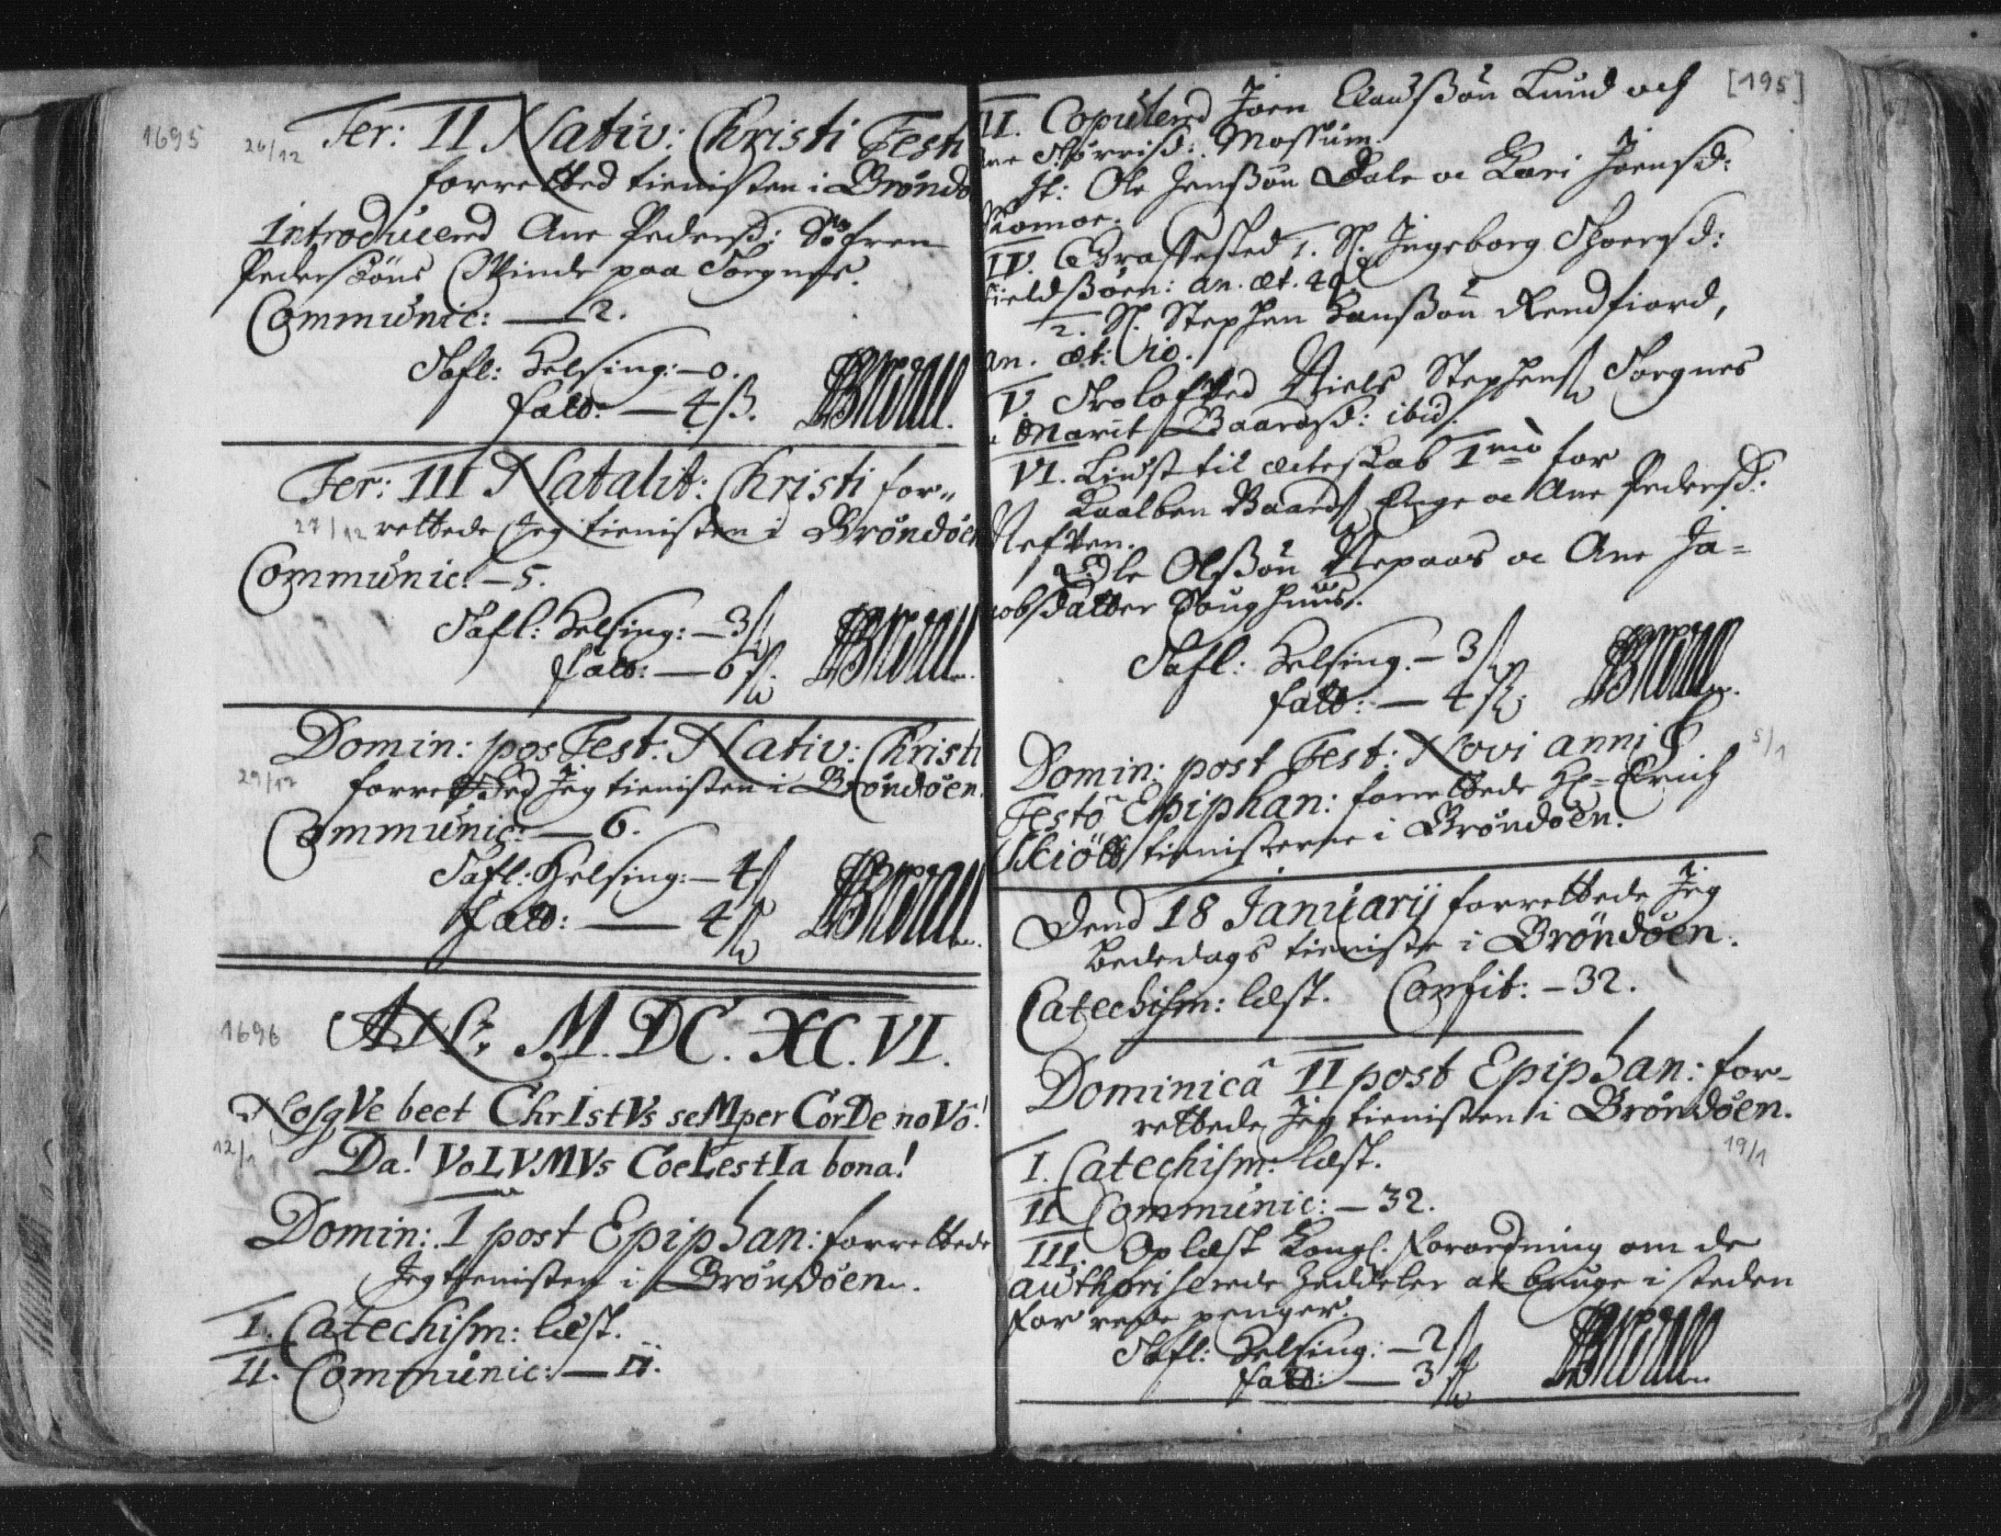 1695
26/12
Fer: II Nativ: Christi Festi
forretted tienisten i Brøndø
Introducered Ane Pedersd: Søfren
Pederssøns Qvinde paa Torgnes.
Communic: — 2.
Tafl: Helsing: — 0.
fatt: — 4 ß.
Fer: III Natalit: Christi for„
27/12
rettede Jeg tienisten i Brøndøen
Communic: — 5.
Tafl: Helsing: — 3 ß
fatt: — 6 ß.
Domin: pos Fest: Nativ: Christi
29/12
forretted Jeg tienisten i Brøndøen.
Communic: — 6.
Tafl: Helsing: — 4 ß
fatt: — 4 ß
1696
M. DC. XC. VI.
NosqVe beet ChrIstVs seMper CorDe noVô!
12/1
Da! VoLVMVs CoeLestIa bona!
Domin: I post Epiphan: forrettede
Jeg tienisten i Brøndøen.
I. Catechism: læst.
II. Communic: — II.
[195]
II. Copulered Joen Clausßøn Lund och
Ane Thorrisd: Mossum.
It: Ole Jenßøn Dale oc Kari Joensd:
Romoe.
IV. Græsfested 1. Sl. Ingeborg Thoersd:
Fieldßøen: an. æt. 40
2. Sl. Stephen Hanßøn Rendfiord,
an. æt: 10.
V. Trolofved Niels Stephens Torgnes
oc Marit Baardsd: ibid.
VI. Liust til ecteskab 1mô for
Kaalben Baards Enge oc Ane Pedersd:
Nefven.
Ole Olßøn Nepaas oc Ane Ja=
cobsdatter Soughuus.
Tafl: Helsing. — 3 ß
fatt: — 4 ß
Domin: post Fest: Novi anni &
5/1
Festô Epiphan: forrettede Hr. Erich
Schiøtt tienisterne i Brøndøen.
Dend 18 Januarij forrettede Jeg
Bededags tieniste i Brøndøen.
Catechism: læst. Confit: — 32.
Dominicâ II post Epiphan: for-
rettede Jeg tienisten i Brøndøen.
19/1
I. Catechism: læst.
II. Communic: — 32.
III. Oplæst Kongl. Forordning om de
authoriserede Zeddeler at bruge i steden
for rede penger.
Tafl: Helsing: — 2 ß
fatt: — 3 ß